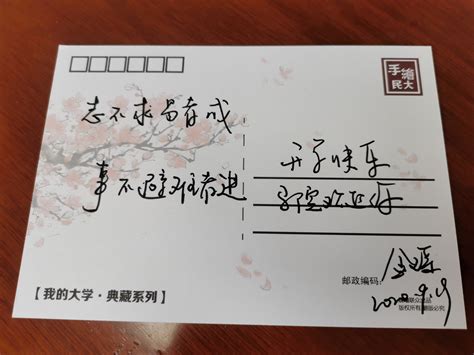 手绘民大
志不求易者成
事不避难者进
开学快乐
欢迎你
邮政编码:
2020.9.19
版权所有 翻版必究
【我的大学·典藏系列】